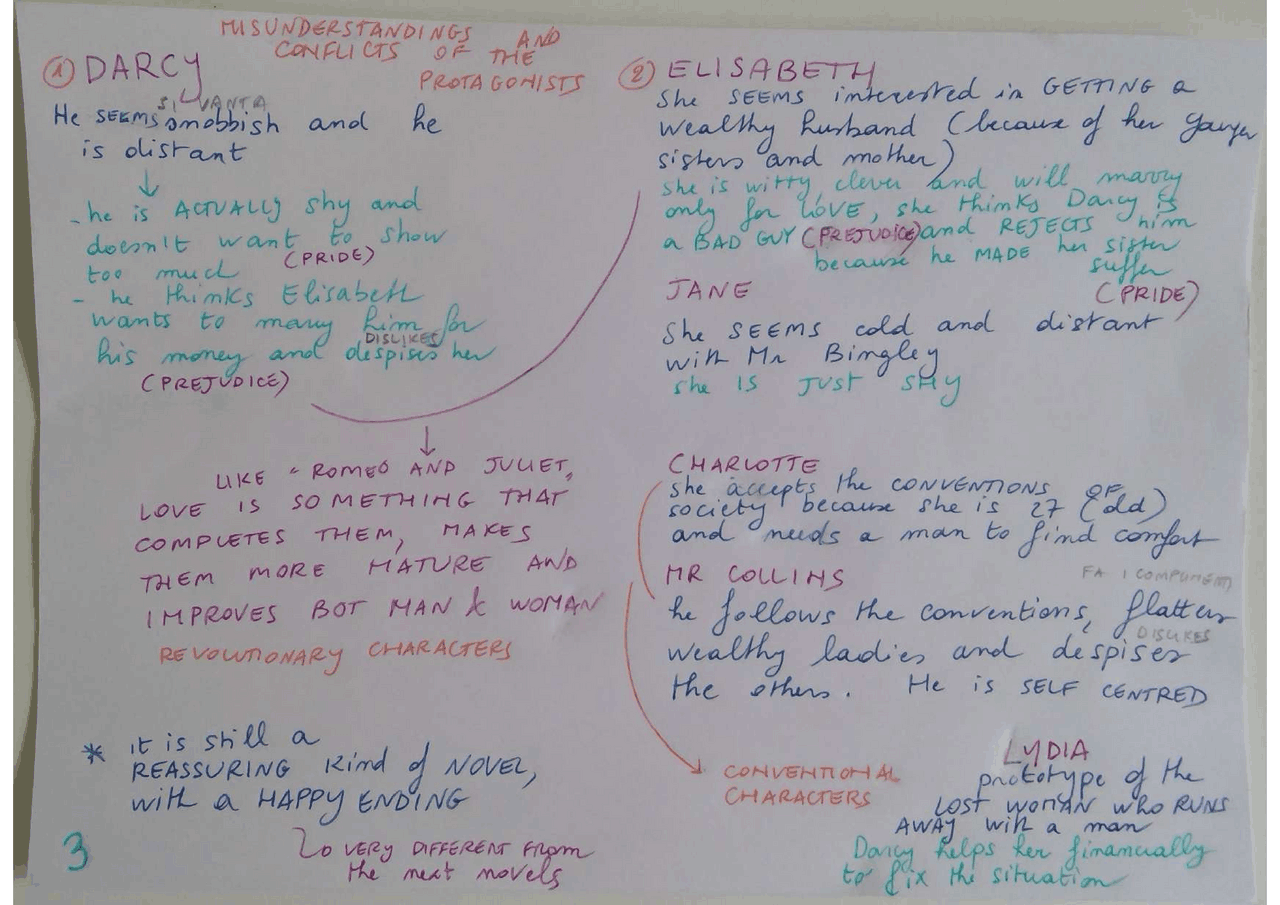 MISUNDERSTANDINGS AND
CONFLICTS OF THE
PROTAGONISTS
1 DARCY
SI VANTA
He SEEMS snobbish and he
is distant
- he is ACTUALLY shy and
doesn't want to show
too much (PRIDE)
- he thinks Elisabeth
wants to marry him for
DISLIKES
his money and despises her
(PREJUDICE)
LIKE "ROMEO AND JULIET"
LOVE IS SOMETHING THAT
COMPLETES THEM, MAKES
THEM MORE MATURE AND
IMPROVES BOT MAN & WOMAN
REVOLUTIONARY CHARACTERS
* it is still a
REASSURING kind of NOVEL,
with a HAPPY ENDING
VERY DIFFERENT FROM
the next novels
3
2 ELISABETH
She SEEMS interested in GETTING a
wealthy husband (because of her younger
sisters and mother)
she is witty, clever and will marry
only for LOVE, she thinks Darcy is
a BAD GUY (PREJUDICE) and REJECTS him
because he MADE her sister
suffer
(PRIDE)
JANE
She SEEMS cold and distant
with Mr Bingley
she IS JUST SHY
CHARLOTTE
she accepts the CONVENTIONS OF
society because she is 27 (old)
and needs a man to find comfort
MR COLLINS
FA I COMPLIMENTI
he follows the conventions, flatters
DISLIKES
wealthy ladies and despises
the others. He is SELF CENTRED
CONVENTIONAL
CHARACTERS
LYDIA
prototype of the
LOST WOMAN WHO RUNS
AWAY with a man
Darcy helps her financially
to fix the situation